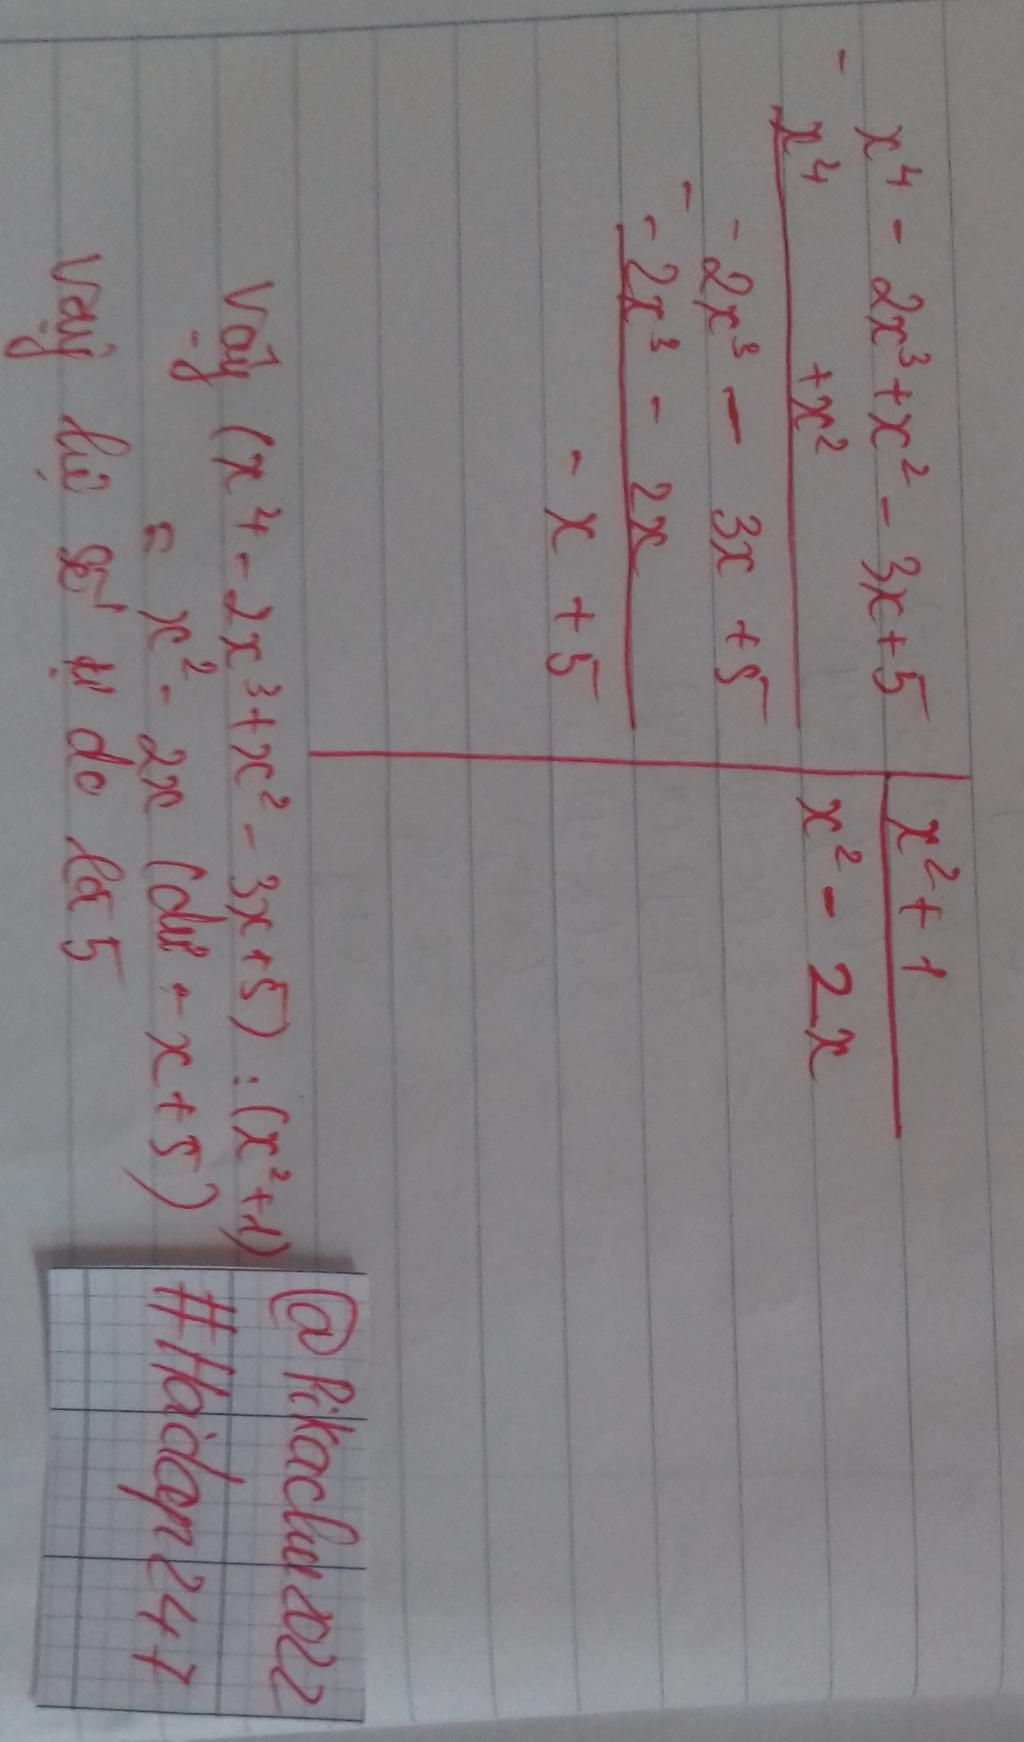 x⁴ - 2x³ + x² - 3x + 5
x² + 1
-
x⁴ + x²
x² - 2x
- 2x³ - 3x + 5
-
- 2x³ - 2x
- x + 5
Vậy (x⁴ - 2x³ + x² - 3x + 5) : (x² + 1)
= x² - 2x (dư - x + 5)
Vậy hệ số tự do là 5
@Pikachu2022
#Hoidap247